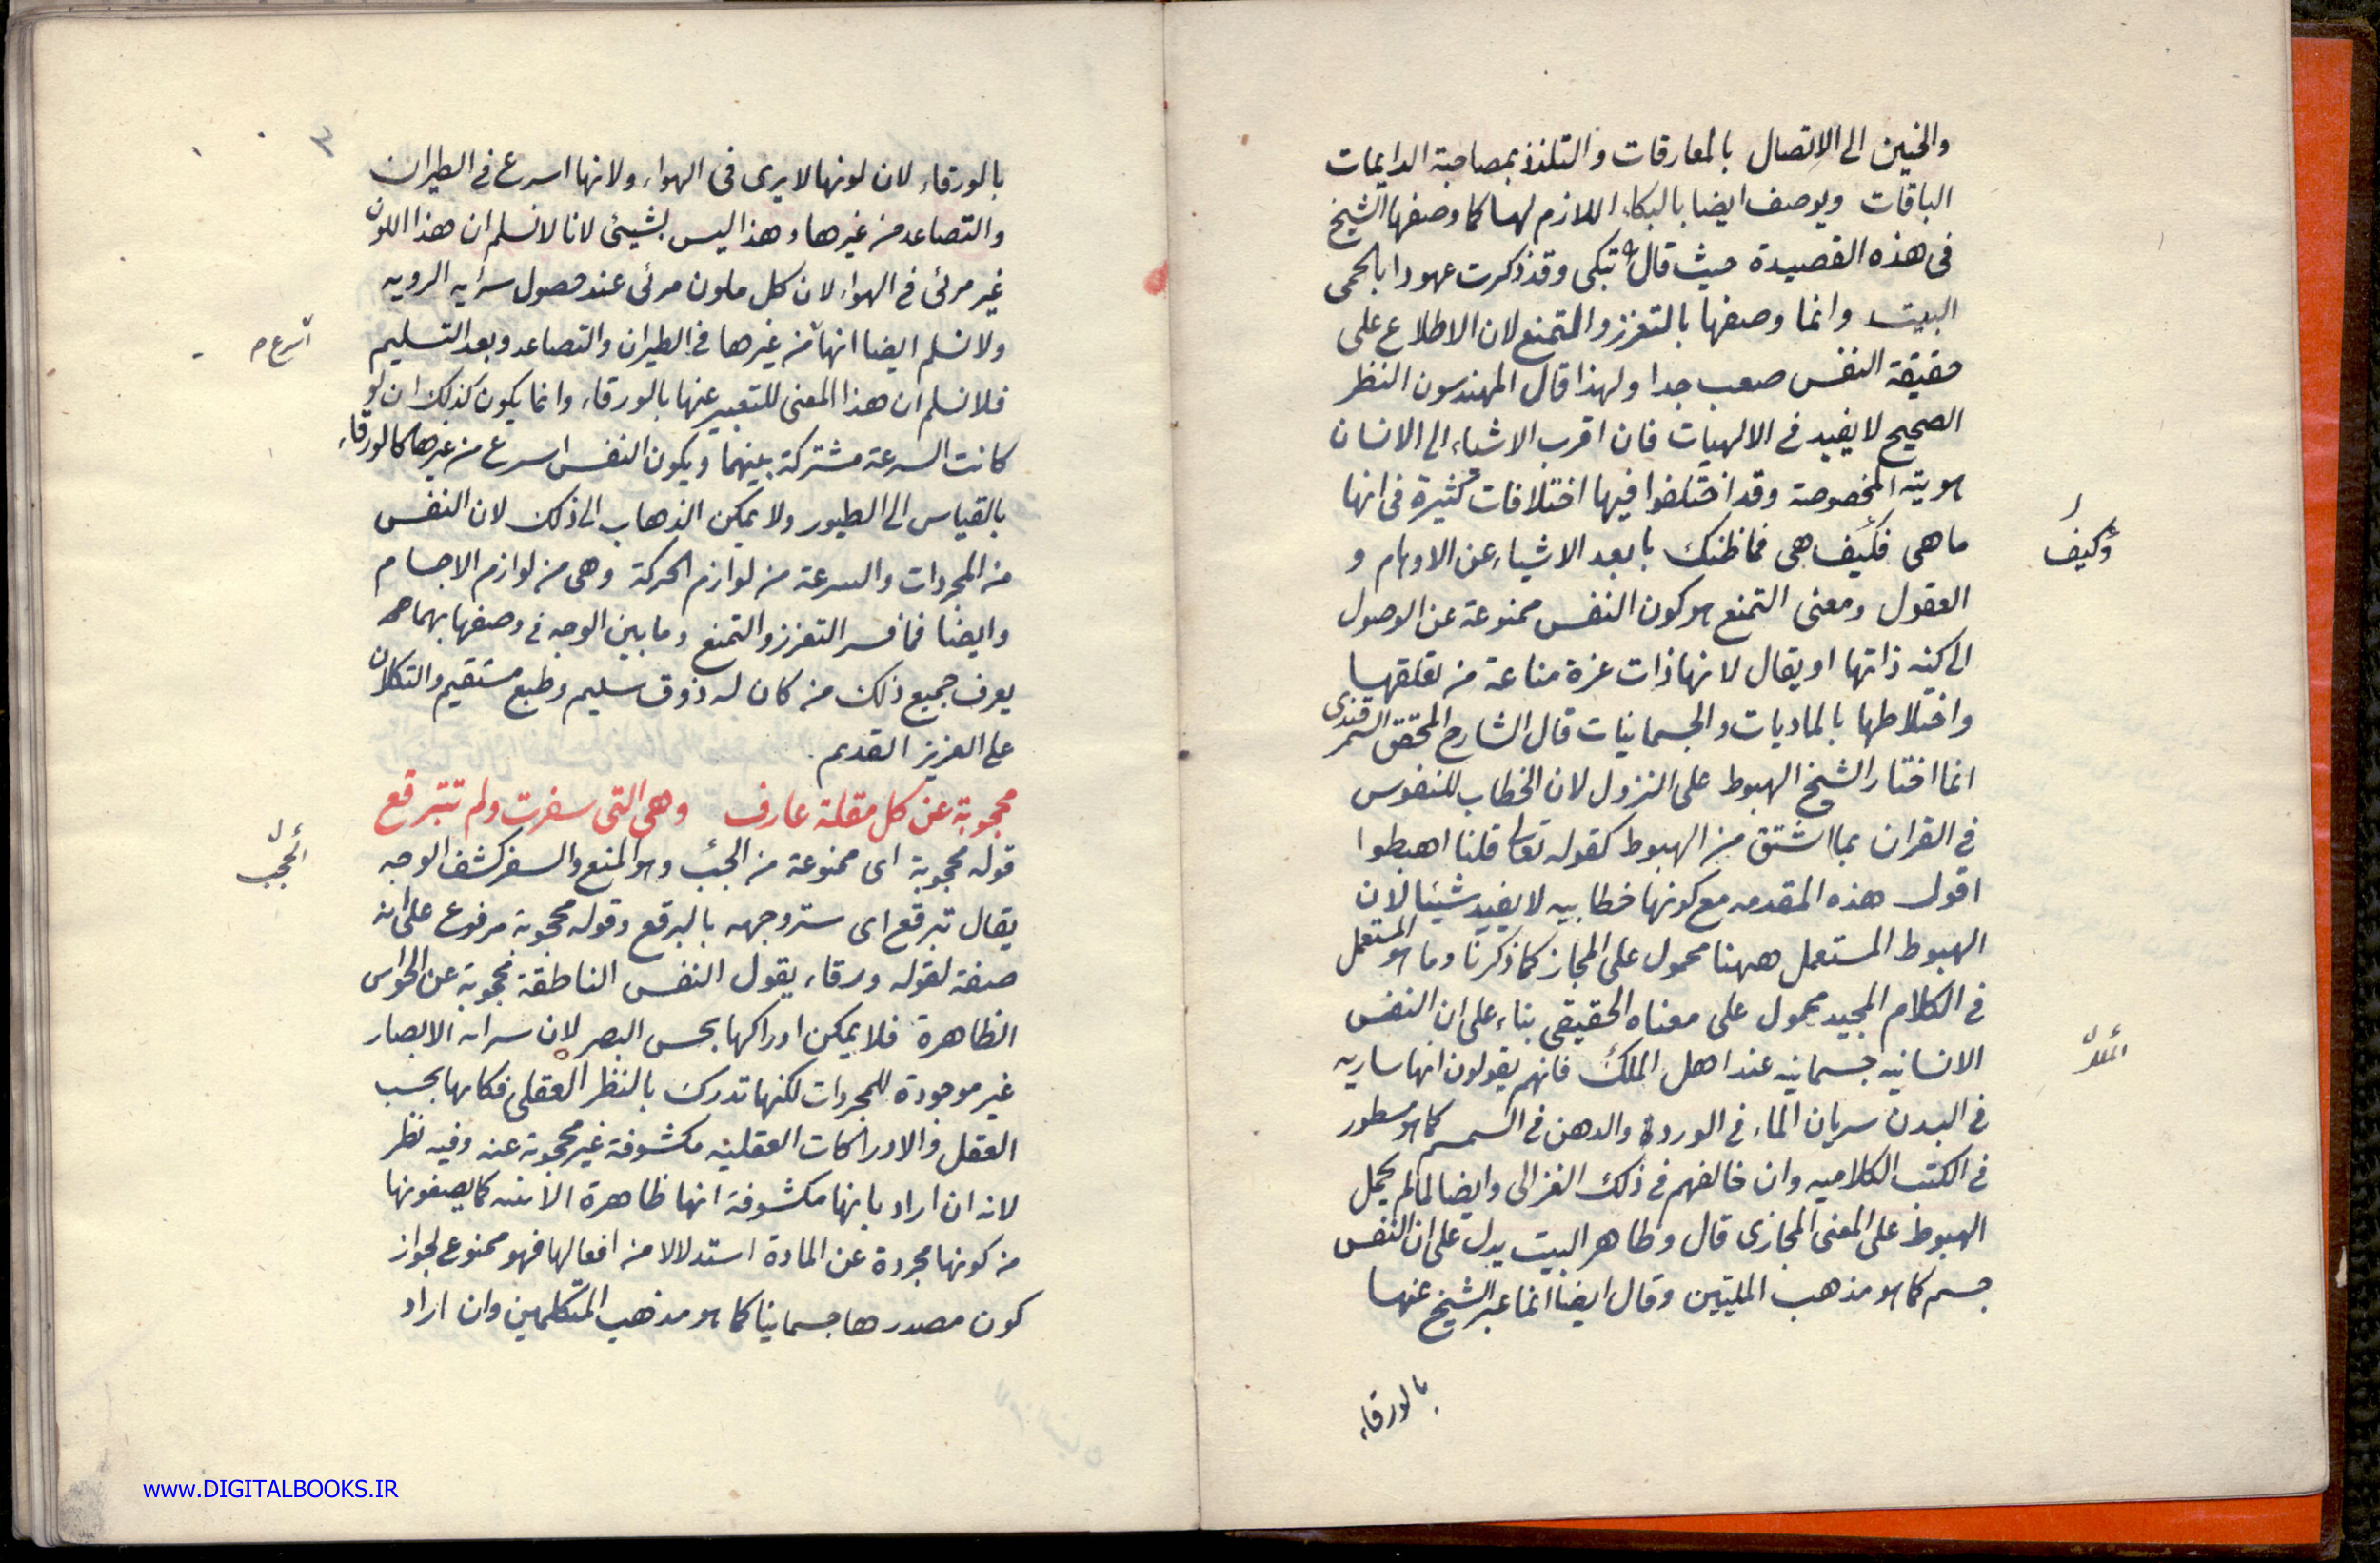 والحنين الى الاتصال بالمعارقات والتلذذ بمصاحبة الدايمات
الباقات ويوصف ايضا بالبكاء اللازم لها كما وصفها الشيخ
فى هذه القصيدة حيث قال تبكى وقد ذكرت عهودا بالحمى
البيت وانما وصفها بالتعزز والتمنع لان الاطلاع على
حقيقة النفس صعب جدا ولهذا قال المهندسون النظر
الصحيح لا يفيد فى الالهيات فان اقرب الاشياء الى الانسان
هويته المخصوصة وقد اختلفوا فيها اختلافات كثيرة فى انها
ما هى فكيف هى فما ظنك بابعد الاشياء عن الاوهام و
وكيف
العقول ومعنى التمنع هو كون النفس ممنوعة عن الوصول
الى كنه ذاتها او يقال لانها ذات عزة مناعة من تعلقها
واختلاطها بالماديات والجسمانيات قال الشارح المحقق السمرقندى
انما اختار الشيخ الهبوط على النزول لان الخطاب للنفوس
فى القران بما اشتق من الهبوط كقوله تعالى قلنا اهبطوا
اقول هذه المقدمه مع كونها خطابيه لا يفيد شيئا لان
الهبوط المستعمل ههنا محمول على المجاز كما ذكرنا وما هو المستعمل
فى الكلام المجيد محمول على معناه الحقيقى بناء على ان النفس
الانسانيه جسمانيه عند اهل الملك فانهم يقولون انها ساريه
الملل
فى البدن سريان الماء فى الوردة والدهن فى السمسم كما هو مسطور
فى الكتب الكلاميه وان خالفهم فى ذلك الغزالى وايضا لما لم يحمل
الهبوط على المعنى المجازى قال وظاهر البيت يدل على ان النفس
جسم كما هو مذهب المليّين وقال ايضا انما عبر الشيخ عنها
بالورقاء
٣
بالورقاء لان لونها لا يرى فى الهواء ولانها اسرع فى الطيران
والتصاعد من غيرها وهذا ليس بشيئى لانا لا نسلم ان هذا اللون
غير مرئى فى الهواء لان كل ملون مرئى عند حصول شرايه الرويه
ولا نسلم ايضا انها من غيرها فى الطيران والتصاعد وبعد التسليم
اسرع م
فلا نسلم ان هذا المعنى للتعبير عنها بالورقاء وانما يكون كذلك ان لو
كانت السرعة مشتركة بينهما ويكون النفس اسرع من غيرها كالورقاء
بالقياس الى الطيور ولا يمكن الذهاب الى ذلك لان النفس
من المجردات والسرعة من لوازم الحركة وهى من لوازم الاجسام
وايضا فما فسر التعزز والتمنع وما بين الوجه فى وصفها بهما
يعرف جميع ذلك من كان له ذوق سليم وطبع مستقيم والتكلان
على العزيز القديم
محجوبة عن كل مقلة عارف وهى التى سفرت ولم تتبرقع
قوله محجوبة اى ممنوعة من الحجب وهو المنع والسفر كشف الوجه
الحجب
يقال تبرقع اى ستر وجهه بالبرقع وقوله محجوبة مرفوع على انه
صفة لقوله ورقاء يقول النفس الناطقة محجوبة عن الحواس
الظاهرة فلا يمكن ادراكها بحس البصر لان سرائه الابصار
غير موجودة للمجردات لكنها تدرك بالنظر العقلى فكانها بحسب
العقل والادراكات العقليه مكشوفة غير محجوبة عنه وفيه نظر
لانه ان اراد بانها مكشوفة انها ظاهرة كما يصفونها
من كونها مجردة عن المادة استدلالا من افعالها فهو ممنوع لجواز
كون مصدرها جسمانيا كما هو مذهب المتكلمين وان اراد
www.DIGITALBOOKS.IR